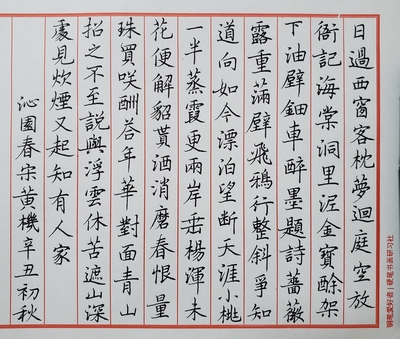 日過西窗客枕夢迴庭空放
衙記海棠洞里泥金寶酴架
下油壁鈿車醉墨題詩薔薇
露重滿壁飛鴉行整斜爭知
道向如今漂泊望斷天涯小桃
一半蒸霞更兩岸垂楊渾未
花便解貂貰酒消磨春恨量
珠買咲酬荅年華對面青山
招之不至説與浮雲休苦遮山深
處見炊煙又起知有人家
沁園春宋黃機辛丑初秋